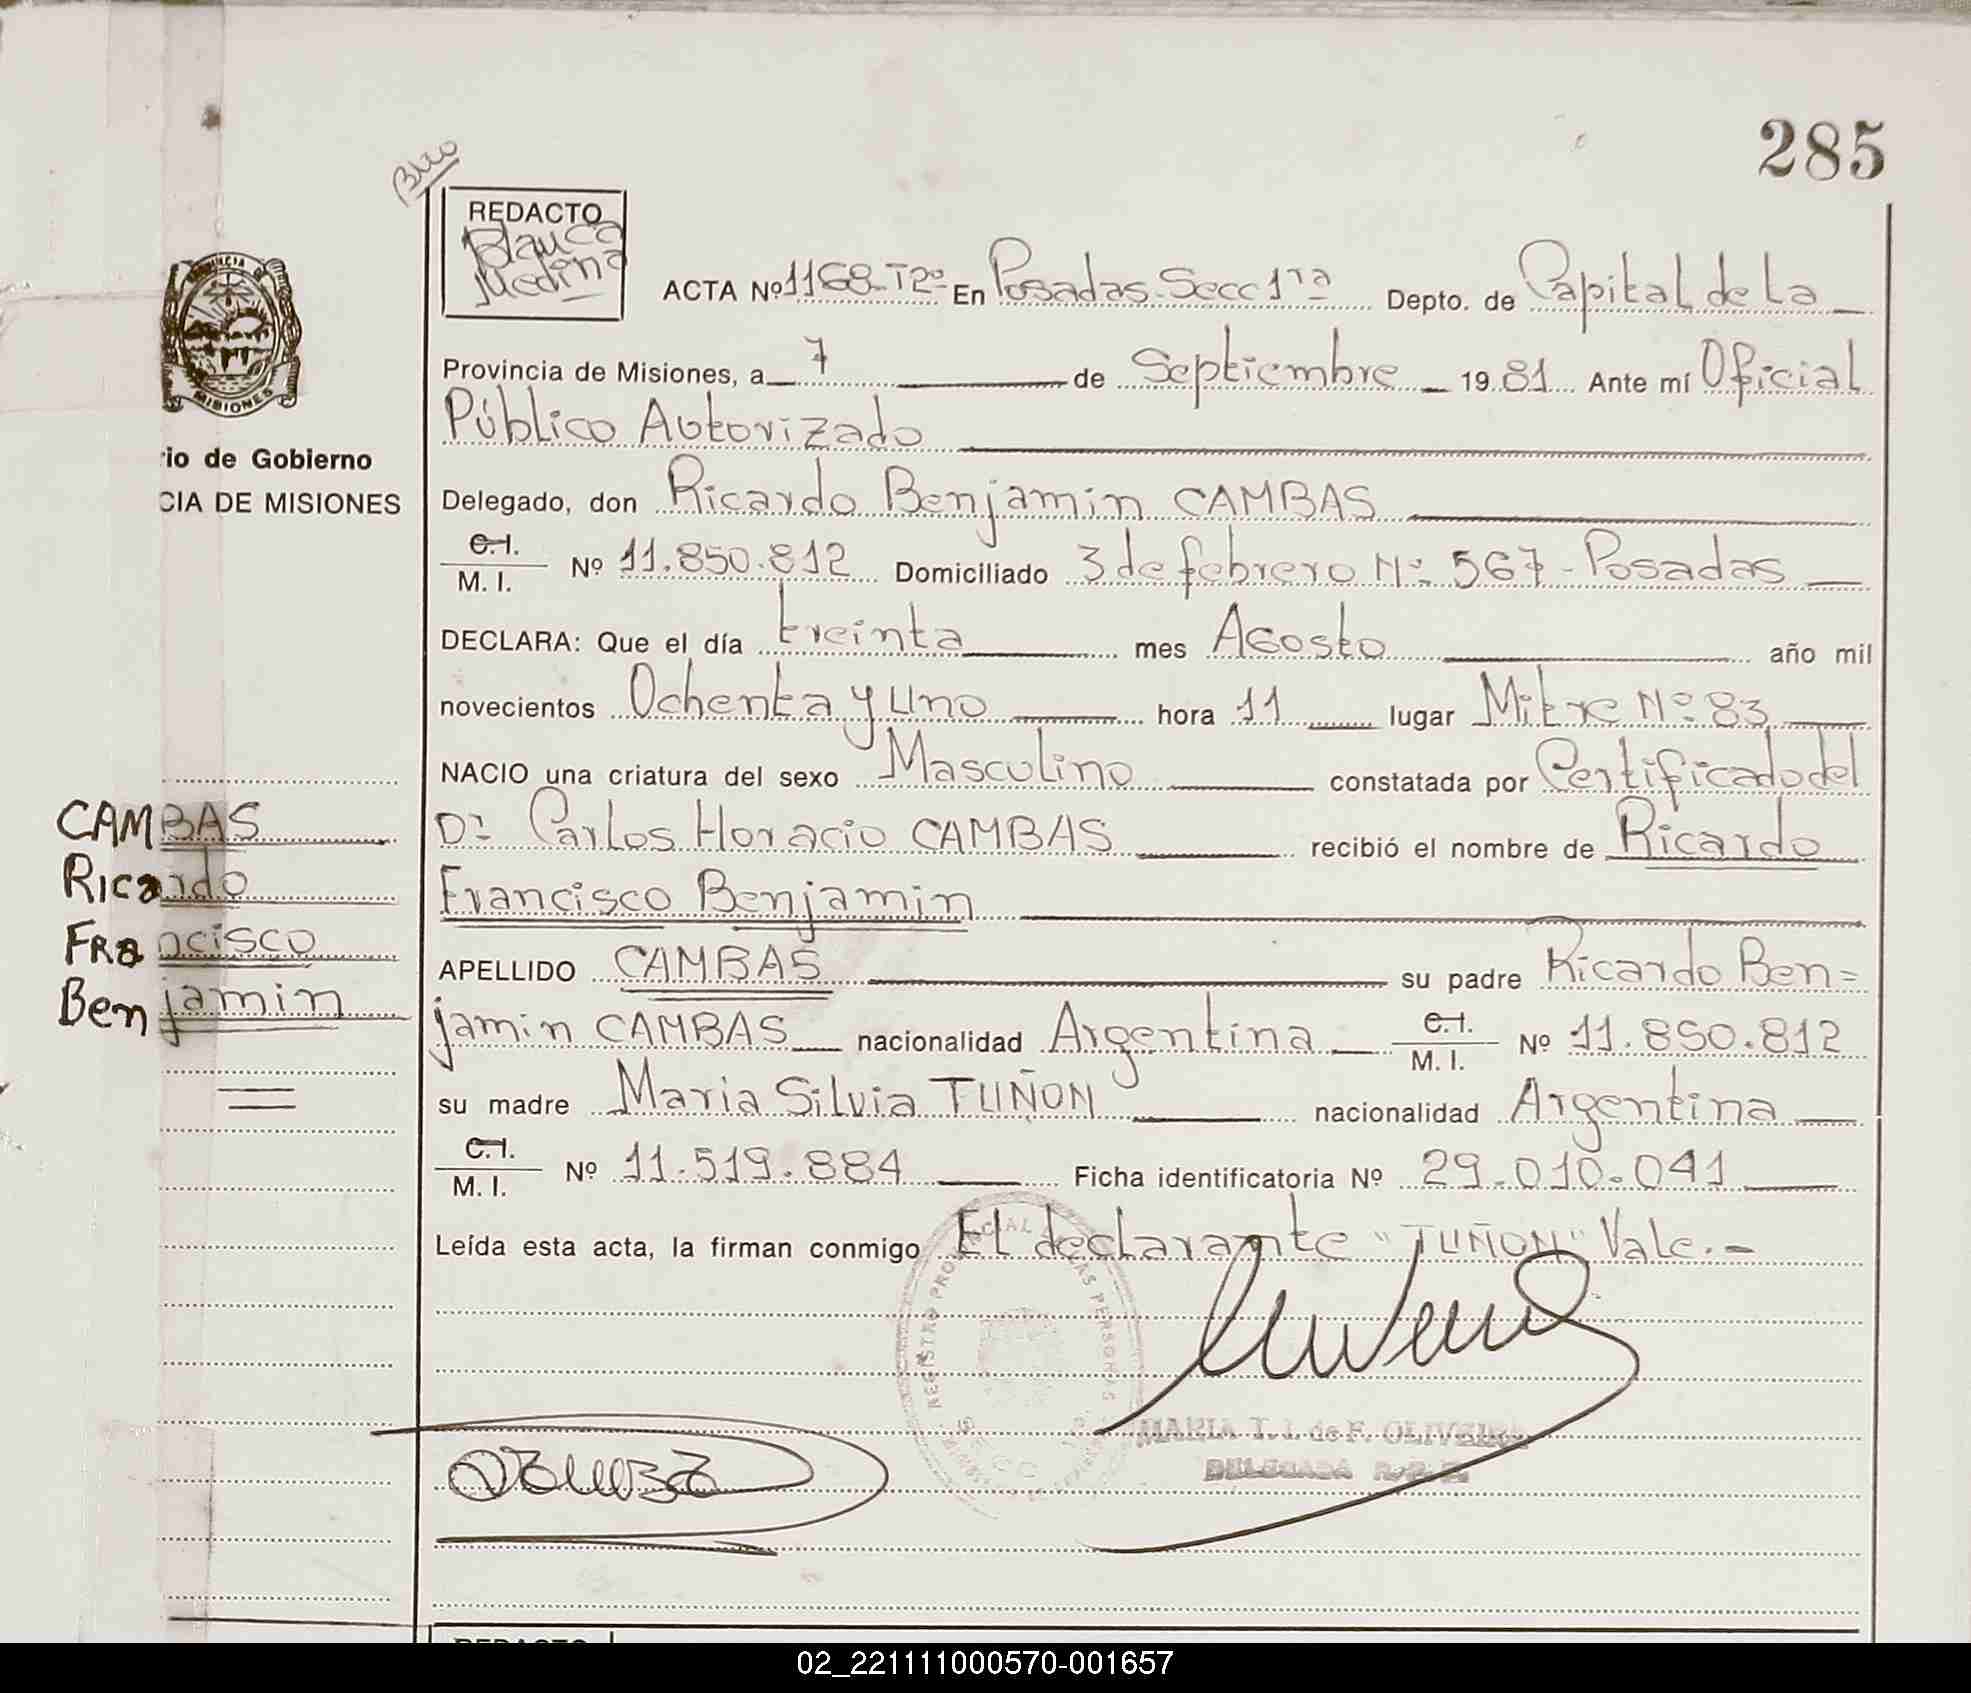 285
Bco
REDACTO
Blanca
Medina
PROVINCIA DE
MISIONES
ACTA Nº 1168-T2º En Posadas-Secc 1ra Depto. de Capital de La
Provincia de Misiones, a 7 de Septiembre 1981 Ante mí Oficial
Público Autorizado
rio de Gobierno
CIA DE MISIONES
Delegado, don Ricardo Benjamin CAMBAS
C.I. M. I. Nº 11.850.812 Domiciliado 3 de febrero Nº 567-Posadas
DECLARA: Que el día treinta mes Agosto año mil
novecientos Ochenta y Uno hora 11 lugar Mitre Nº 83
NACIO una criatura del sexo Masculino constatada por Certificado del
Dr Carlos Horacio CAMBAS recibió el nombre de Ricardo
Francisco Benjamin
CAMBAS
Ricardo
Francisco
Benjamin
APELLIDO CAMBAS su padre Ricardo Ben=
jamin CAMBAS nacionalidad Argentina C.I. M. I. Nº 11.850.812
su madre Maria Silvia TUÑON nacionalidad Argentina
C.I. M. I. Nº 11.519.884 Ficha identificatoria Nº 29.010.041
Leída esta acta, la firman conmigo El declarante "TUÑON" Vale.-
REGISTRO PROVINCIAL DE LAS PERSONAS
SECC. 1a.
MARIA T. I. de F. OLIVEIRA
DELEGADA R.P.P.
REDACTO
02_221111000570-001657